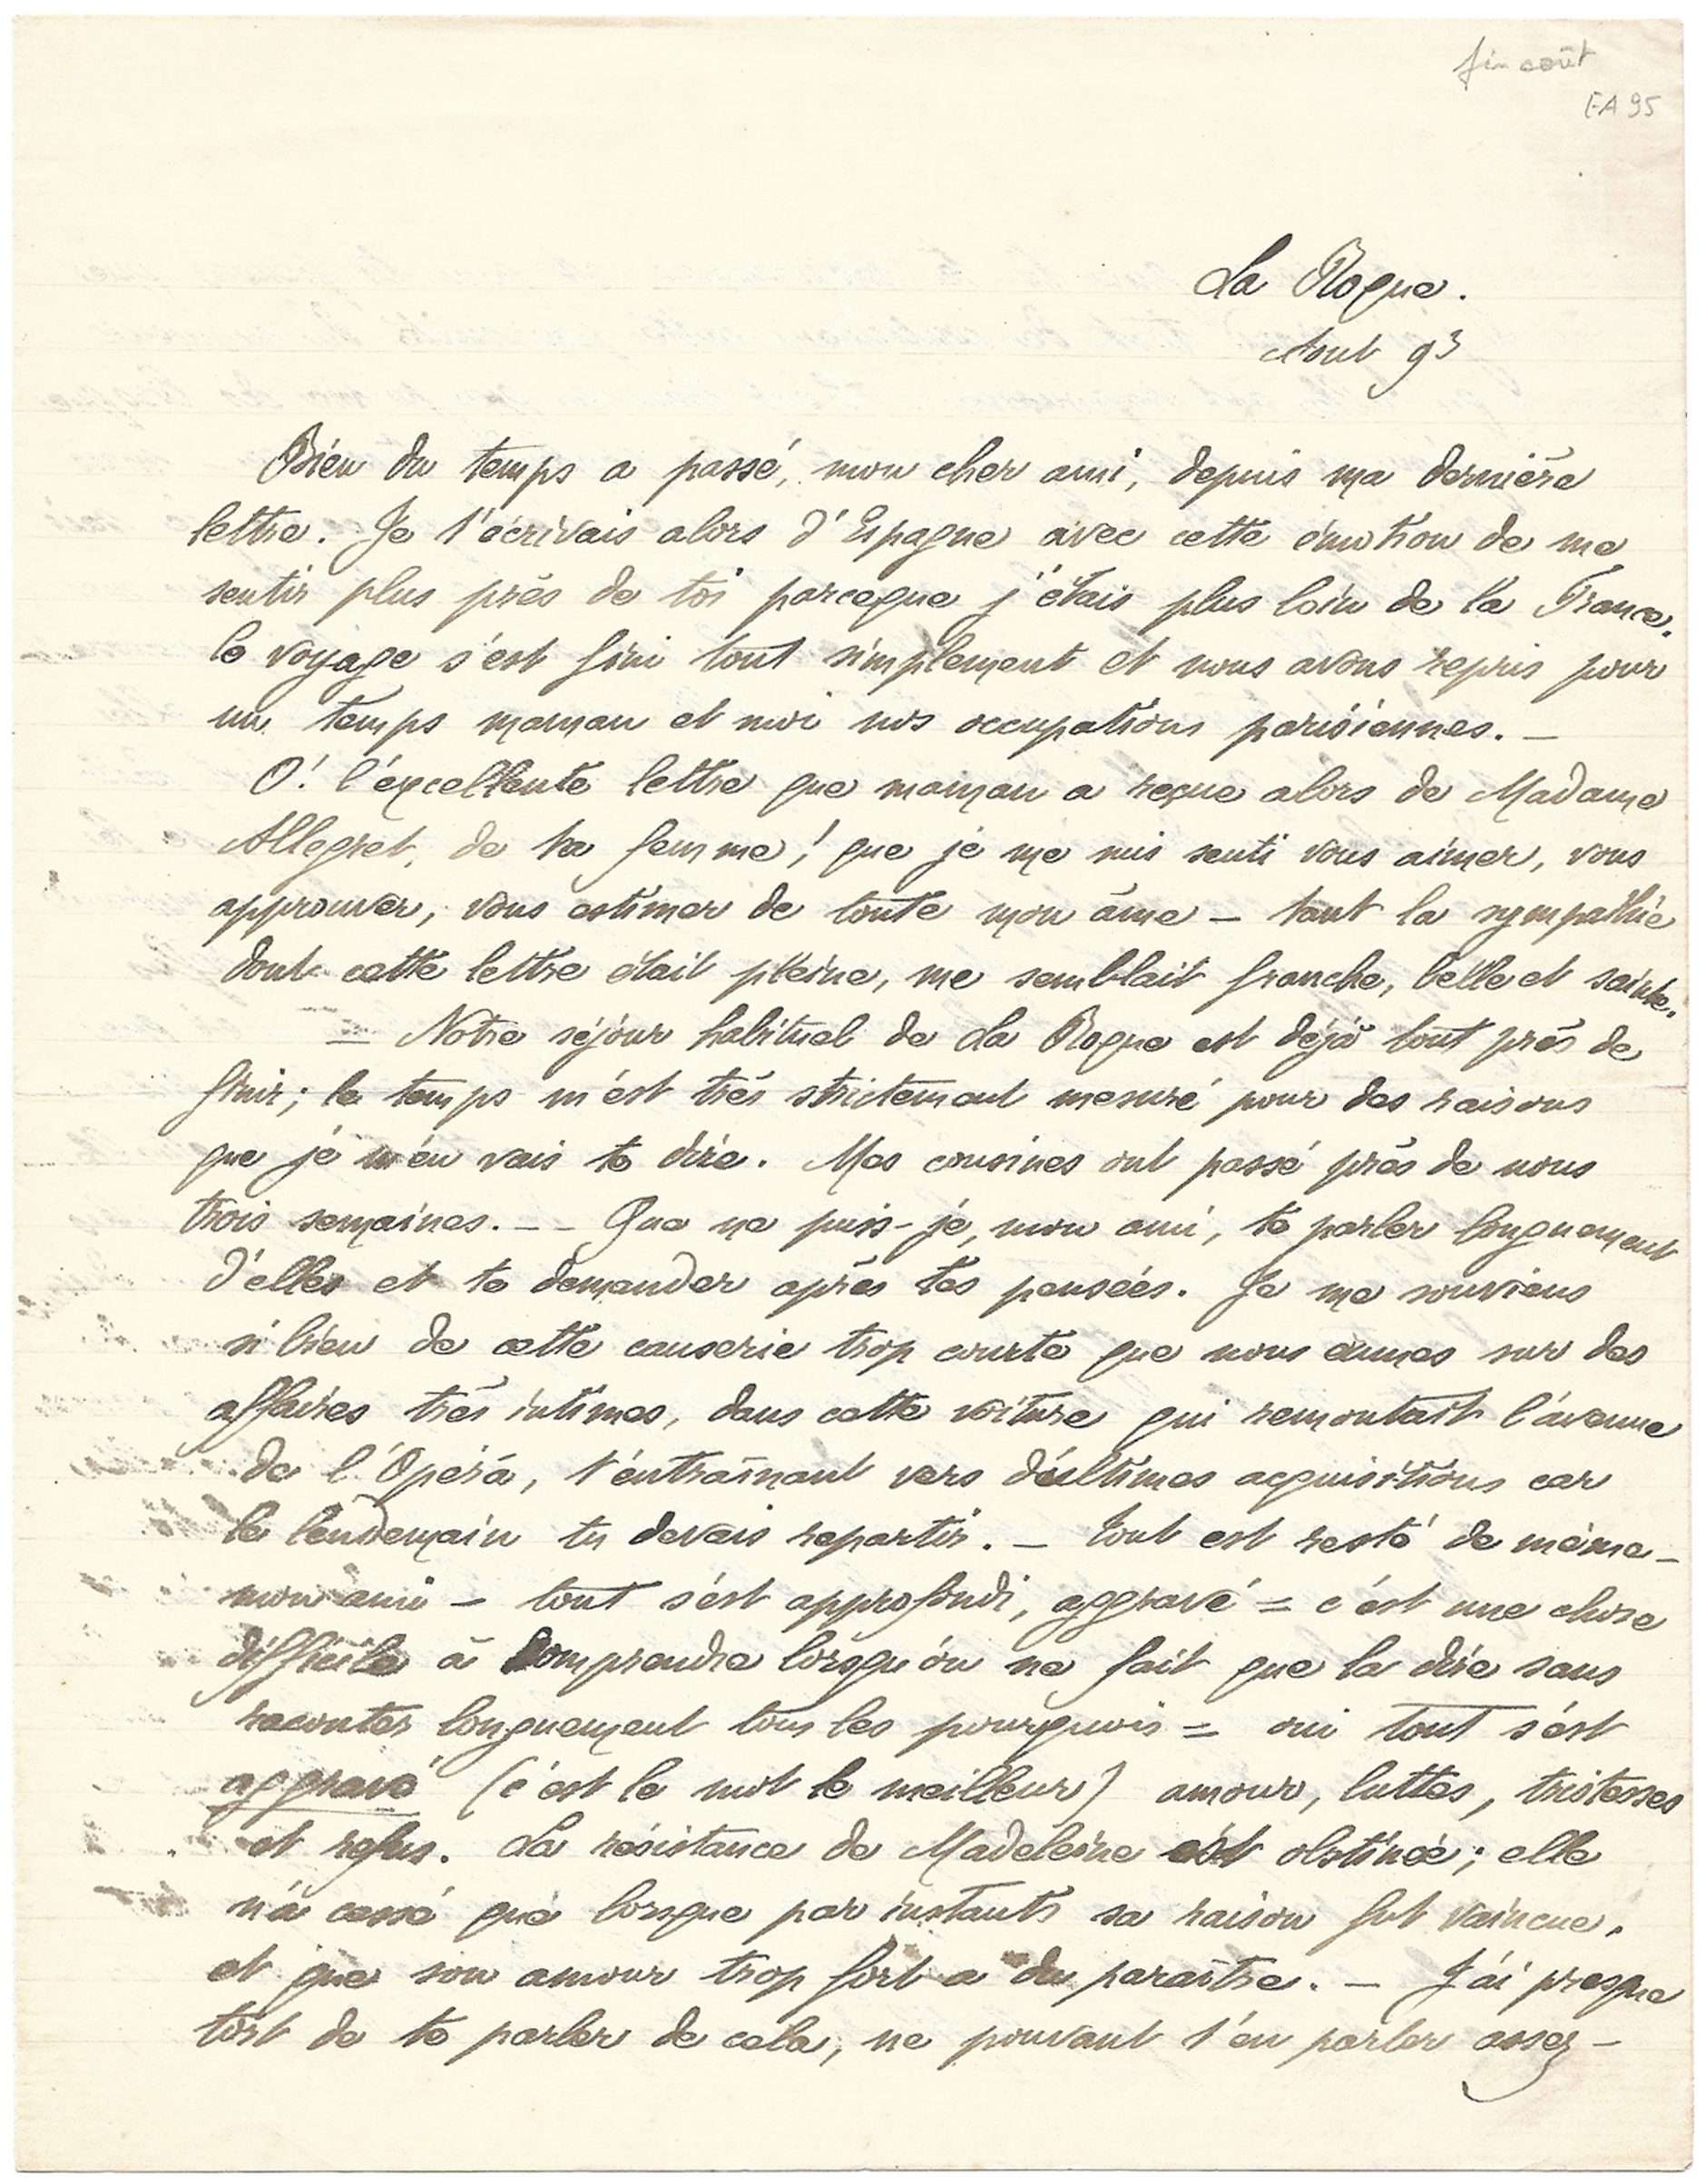 fin août
EA 95
La Roque.
Aout 93
Bien du temps a passé, mon cher ami, depuis ma dernière
lettre. Je t'écrivais alors d'Espagne avec cette émotion de me
sentir plus près de toi parceque j'étais plus loin de la France.
le voyage s'est fini tout simplement et nous avons repris pour
un temps maman et moi nos occupations parisiennes. —
O! l'excellente lettre que maman a reçue alors de Madame
Allegret, de ta femme! que je me suis senti vous aimer, vous
approuver, vous estimer de toute mon âme — tant la sympathie
dont cette lettre était pleine, me semblait franche, belle et sainte.
= Notre séjour habituel de La Roque est déjà tout près de
finir; le temps m'est très strictement mesuré pour des raisons
que je m'en vais te dire. Mes cousines ont passé près de nous
trois semaines. — – Que ne puis-je, mon ami, te parler longuement
d'elles et te demander après tes pensées. Je me souviens
si bien de cette causerie trop courte que nous eumes sur des
affaires très intimes, dans cette voiture qui remontait l'avenue
de l'Opéra, t'entraînant vers d'ultimes acquisitions car
le lendemain tu devais repartir. — tout est resté de même —
mon ami — tout s'est approfondi, aggravé = c'est une chose
difficile à comprendre lorsqu'on ne fait que la dire sans
raconter longuement tous les pourquois = oui tout s'est
aggravé (c'est le mot le meilleur) amour, luttes, tristesses
et refus. La résistance de Madeleine est obstinée; elle
n'a cessé que lorsque par instants sa raison fut vaincue,
et que son amour trop fort a du paraître. — J'ai presque
tort de te parler de cela, ne pouvant t'en parler assez —